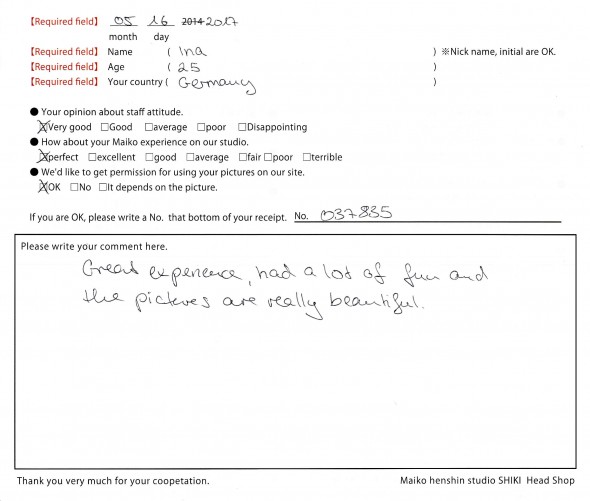 【Required field】 05 16 2014 2017
month day
【Required field】 Name ( Ina ) ※Nick name, initial are OK.
【Required field】 Age ( 25 )
【Required field】 Your country ( Germany )
● Your opinion about staff attitude.
☒Very good □Good □average □poor □Disappointing
● How about your Maiko experience on our studio.
☒perfect □excellent □good □average □fair □poor □terrible
● We'd like to get permission for using your pictures on our site.
☒OK □No □It depends on the picture.
If you are OK, please write a No. that bottom of your receipt. No. 037835
Please write your comment here.
Great experience, had a lot of fun and
the pictures are really beautiful.
Thank you very much for your coopetation. Maiko henshin studio SHIKI Head Shop